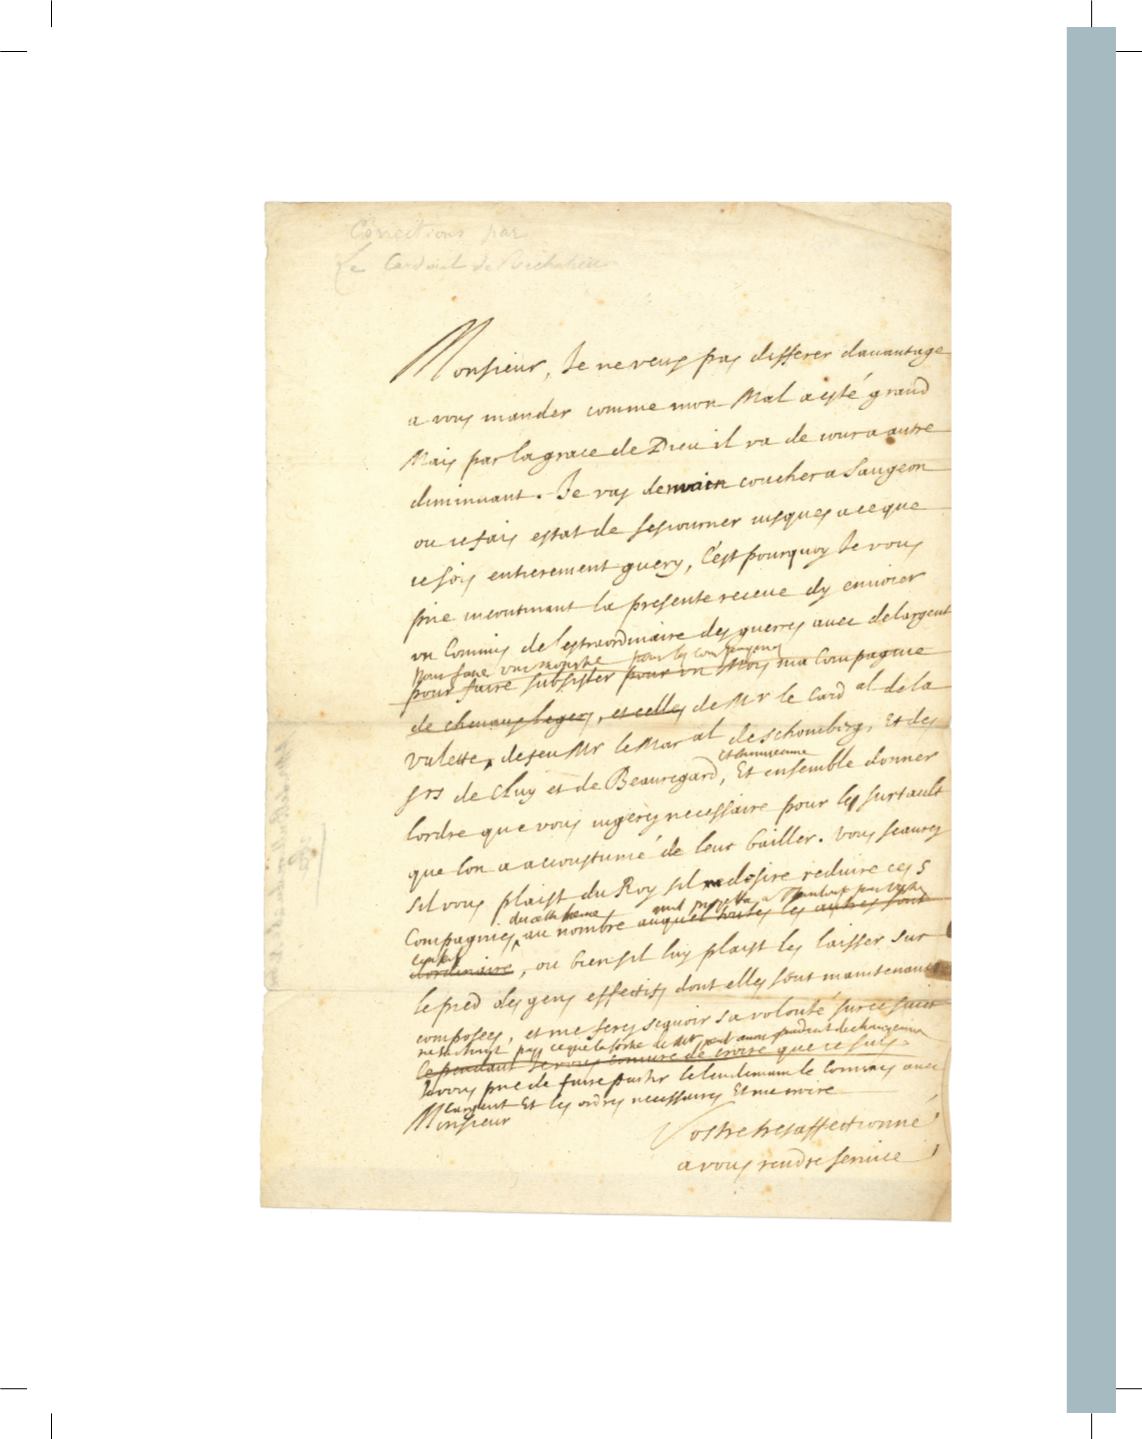 Corrections par
Le Cardinal de Richelieu
Monsieur, Je ne veux pas differer dauantage
a vous mander comme mon Mal a esté grand
Mais par la grace de Dieu il va de iour a autre
diminuant. Je vas demain coucher a Saugeon
ou ie fais estat de seiourner iusques a ce que
ie sois entierement guery, C'est pourquoy Je vous
prie incontinant la presente receue dy enuoier
un Commis de lextraordinaire des guerres auec de largent
pour faire une monstre pour les compagnies
pour faire subsister pour un Mois ma Compagnie
de cheuaux legers, et celles de Mr le Card al de la
Valette, de feu Mr le Mar al de Schomberg, Et des
srs de Cluy et de Beauregard, Et ensemble donner
lordre que vous iugerez necessaire pour le surtault
que lon a accoustumé de leur bailler. Vous scaurez
sil vous plaist du Roy sil desire reduire ces 5
Compagnies au nombre auquel toutes les autres sont
dordinaire, ou bien sil luy plaist les laisser sur
le pied des gens effectifs dont elles sont maintenant
composees, et me ferez scauoir sa volonté sur ce suiet
Cependant Je vous coniure de croire que ie suis
Je vous prie de faire partir le lendemain le Commis auec
largent Et les ordres necessaires Et me croire
Monsieur
Vostre tres affectionné
a vous rendre seruice